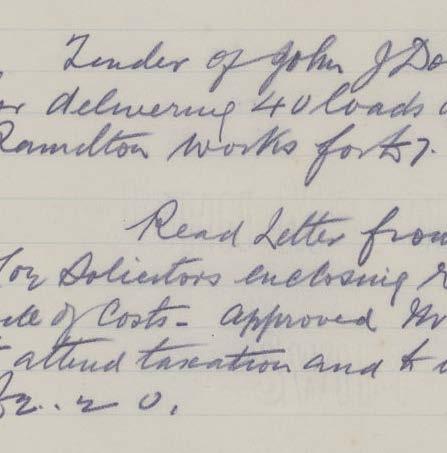 Tender of John J Do
or delivering 40 loads
Ramelton Works for £7.
Read Letter from
Solicitors enclosing
of Costs - approved
attend taxation and to
2..2 0.